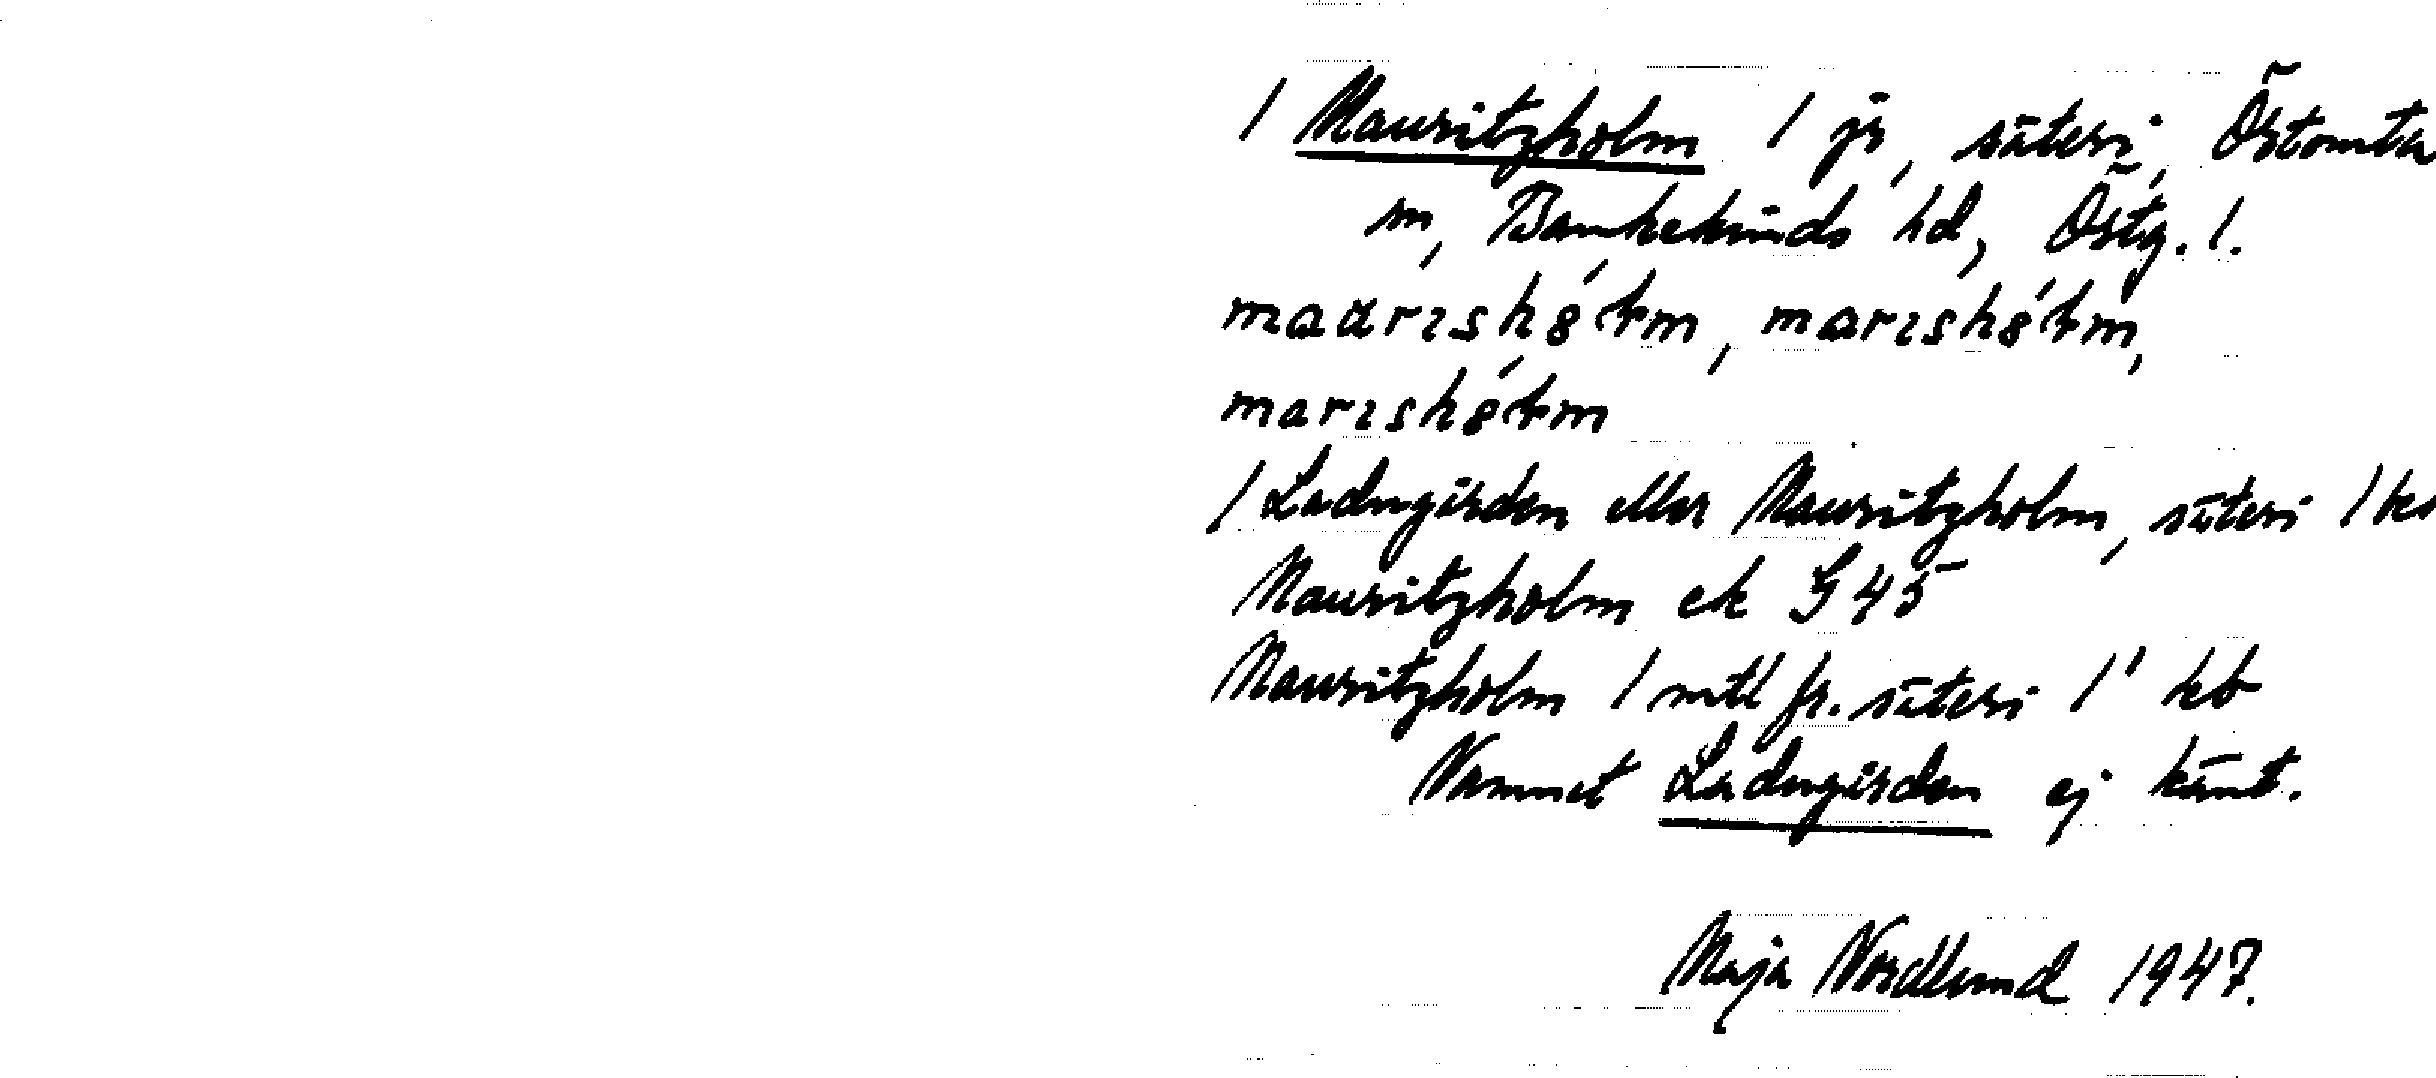 1 Mauritzholm 1 jr, säteri, Östomta
sn, Bankekinds hd, Östg. l.
maɑrıshȣ́łm, marıshȣ́łm,
marıshȣ́łm
1 Ladugården eller Mauritzholm, säteri 1 kb
Mauritzholm ek G 45
Mauritzholm 1 mtl fr. säteri 1¹ kb
Namnet Ladugården ej känt.
Maja Nordlund 1947.